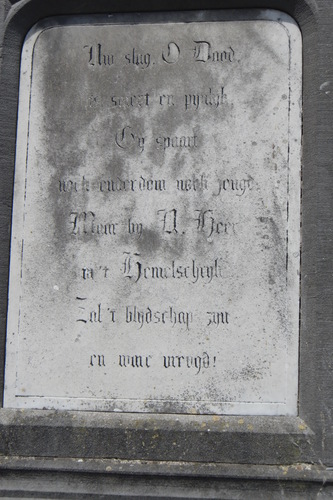 Uw slag, O Dood,
is smart en pynlyk
Gy spaart
noch ouderdom noch jeugd.
Maar by U, Heer
in 't Hemelscherf
Zal 't blydschap zyn
en ware vreugd!